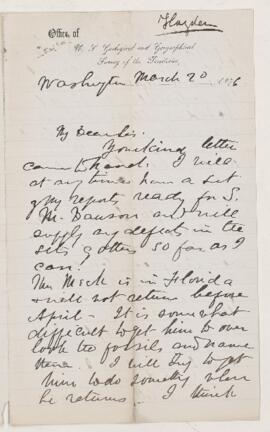 Hayden
Office of
U. S. Geological and Geographical
Survey of the Territories,
Washington March 20 1876
My Dear Sir.
Your kind letter
came to hand. I will
at any time have a set
of my reports ready for
M. Dawson and will
supply any defects in the
sets of others so far as I
can.
Mr Meek is in Florida
and will not return before
April - It is somewhat
difficult to get him to over
look the fossils and name
them. I will try to get
him to do something when
he returns. I think